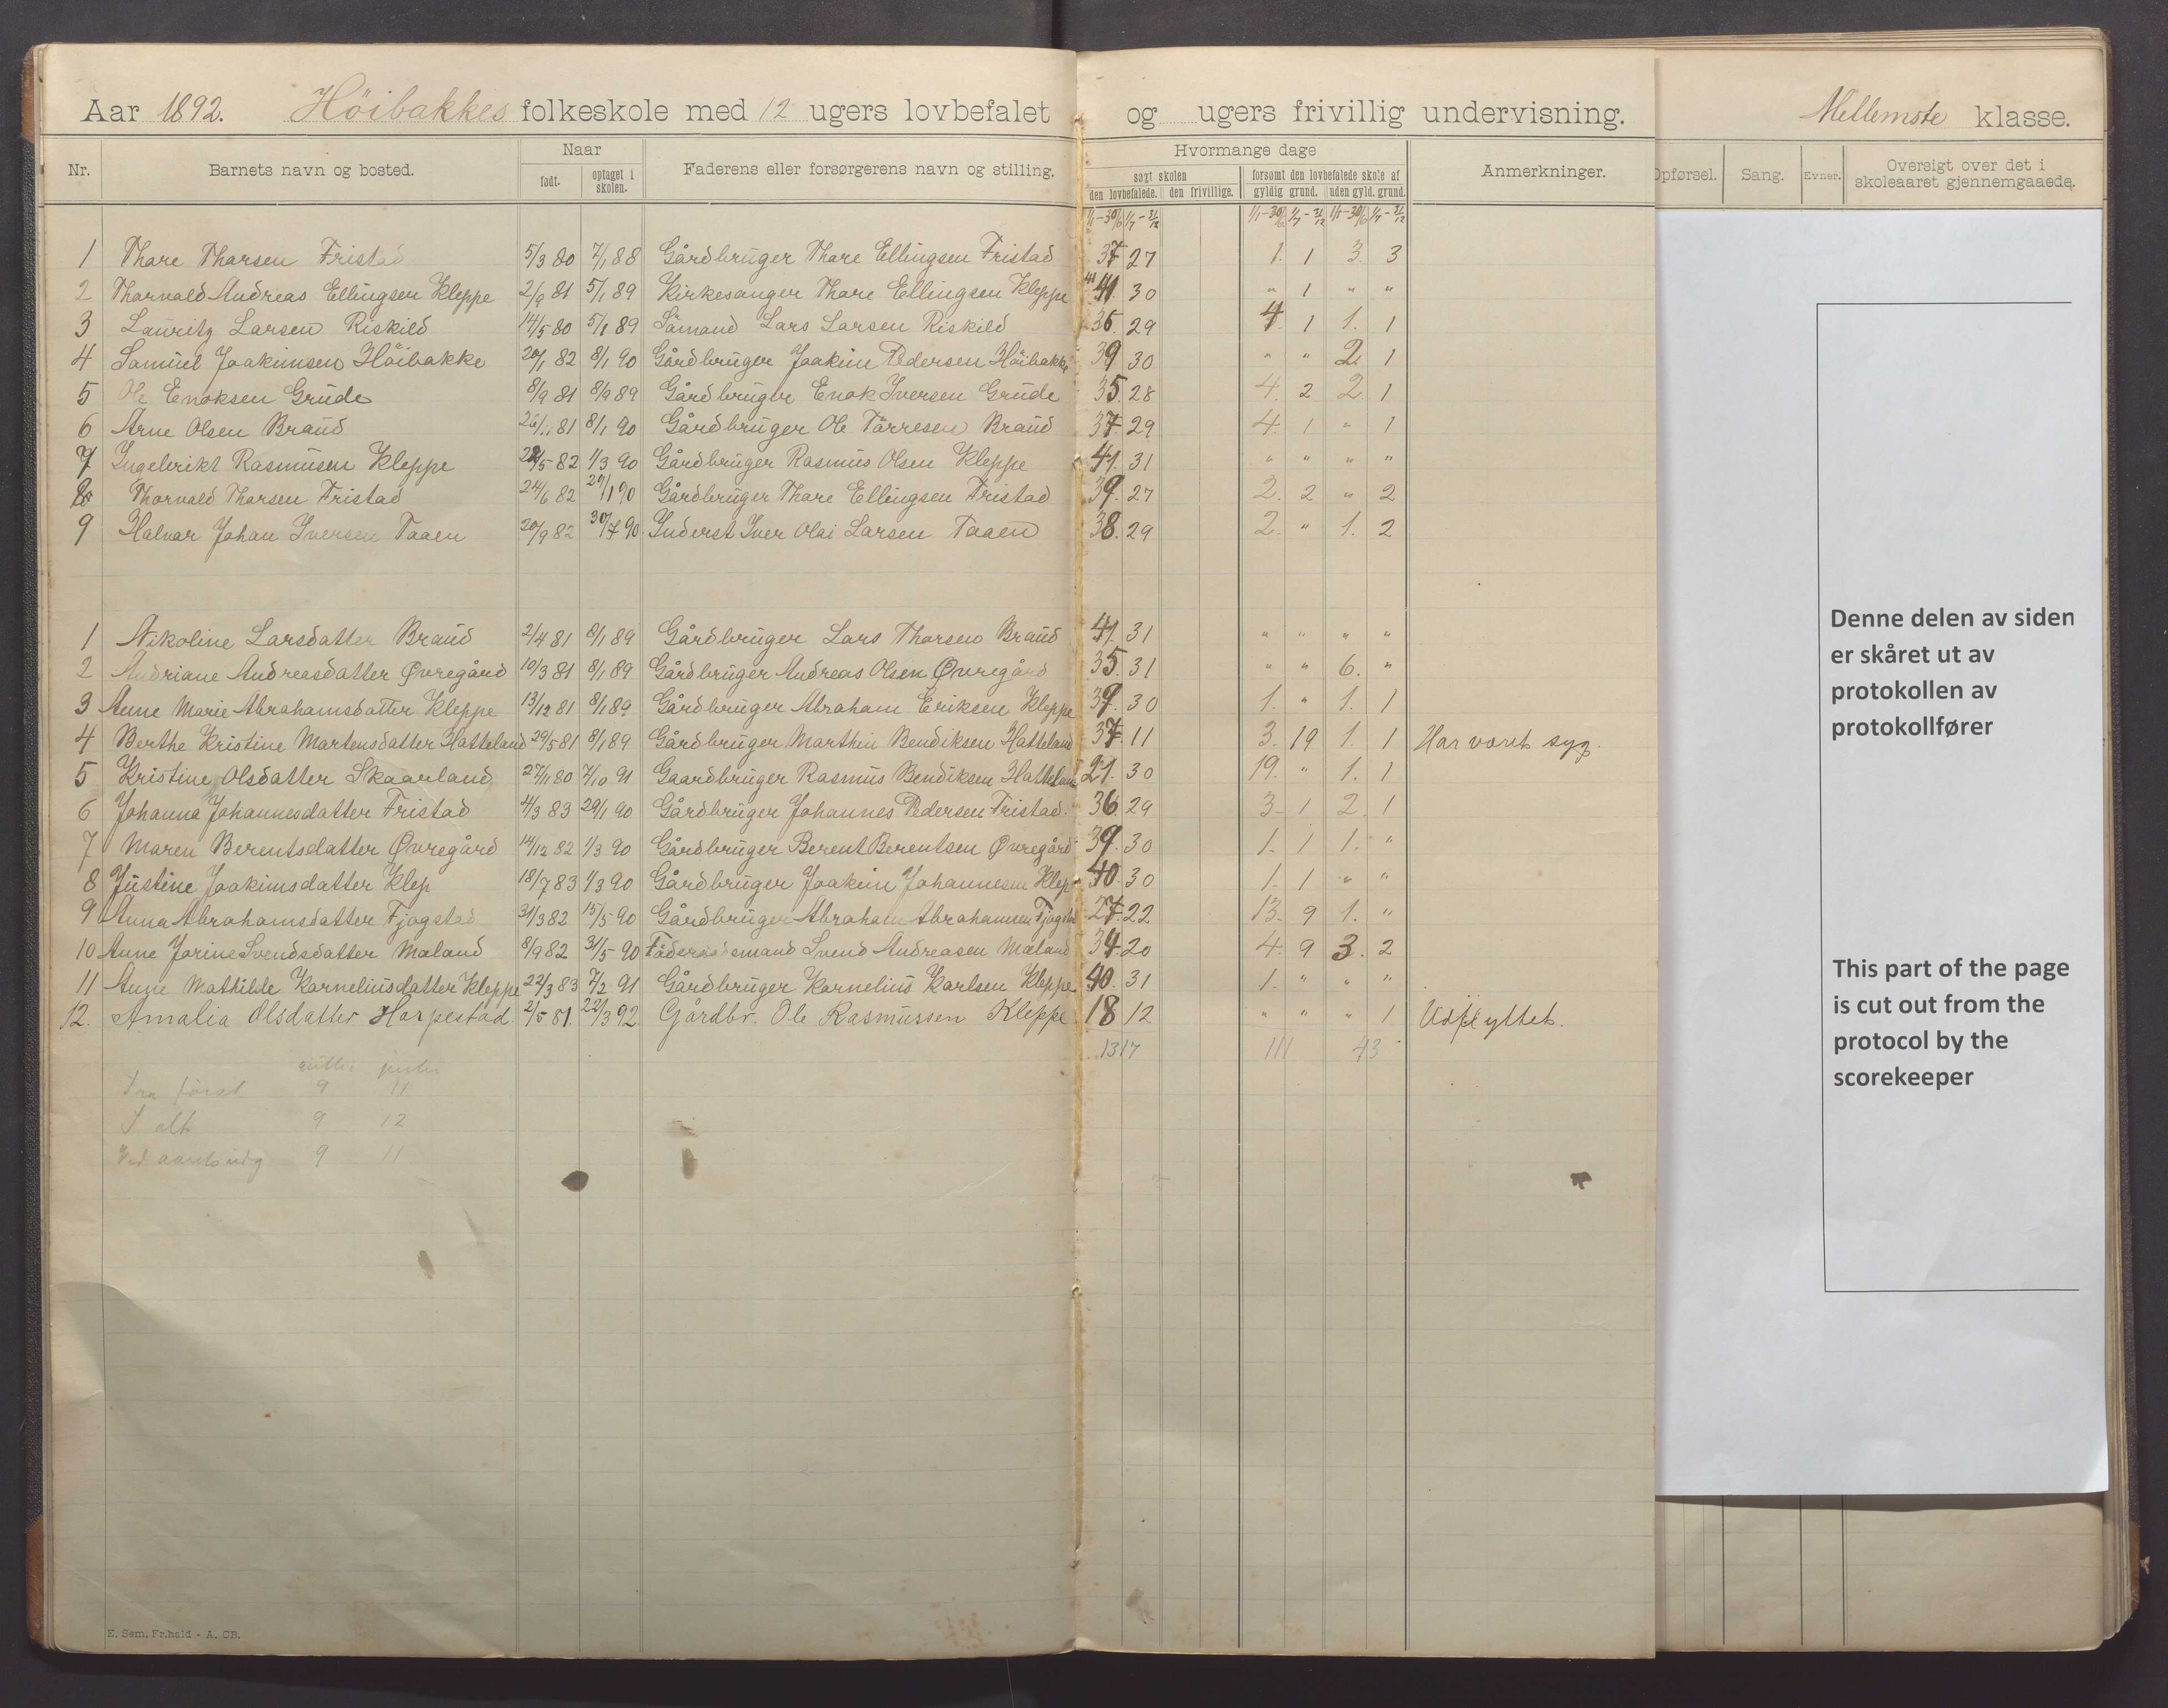 Aar 1892. Höibakkes folkeskole med 12 ugers lovbefalet og ugers frivillig undervisning. Mellemste klasse.
Nr. Barnets navn og bosted. Naar Faderens eller forsørgerens navn og stilling. Hvormange dage Anmerkninger. Opførsel. Sang. Evner. Oversigt over det i skoleaaret gjennemgaaede.
født. optaget i skolen. søgt skolen forsømt den lovbefalede skole af
den lovbefalede. den frivillige. gyldig grund. uden gyld. grund.
1/1-30/6 1/7-31/12 1/1-30/6 1/7-31/12 1/1-30/6 1/7-31/12
1 Thore Thorsen Fristad 5/3 80 7/1 88 Gårdbruger Thore Ellingsen Fristad 37 27 1. 1 3. 3
2 Thorvald Andreas Ellingsen Kleppe 2/9 81 5/1 89 Kirkesanger Thore Ellingsen Kleppe 41 30 " 1 " "
3 Lauritz Larsen Riskild 14/5 80 5/1 89 Sömand Lars Larsen Riskild 36. 29 4. 1 1. 1
4 Samuel Joakimsen Höibakke 20/1 82 8/1 90 Gårdbruger Joakim Pedersen Höibakke 39 30 " " 2. 1
5 Ole Enoksen Grude 8/9 81 8/9 89 Gårdbruger Enok Iversen Grude 35. 28 4. 2 2. 1
6 Arne Olsen Braud 26/11 81 8/1 90 Gårdbruger Ole Törresen Braud 37. 29 4. 1 " 1
7 Ingebrikt Rasmusen Kleppe 28/5 82 1/3 90 Gårdbruger Rasmus Olsen Kleppe 41. 31 " " " "
8 Thorvald Thorsen Fristad 24/6 82 29/1 90 Gårdbruger Thore Ellingsen Fristad 39. 27 2. 2 " 2
9 Halvar Johan Iversen Taaen 20/9 82 30/7 90 Inderst Iver Olai Larsen Taaen 38. 29 2. " 1. 2
1 Nikoline Larsdatter Braud 2/4 81 8/1 89 Gårdbruger Lars Thorsen Braud 41. 31 " " " "
2 Andriane Andreasdatter Øvregård 10/3 81 8/1 89 Gårdbruger Andreas Olsen Øvregård 35. 31 " " 6. "
3 Anne Marie Abrahamsdatter Kleppe 13/12 81 8/1 89 Gårdbruger Abraham Eriksen Kleppe 39. 30 1. " 1. 1
4 Berthe Kristine Martensdatter Hatteland 29/5 81 8/1 89 Gårdbruger Marthin Bendiksen Hatteland 37 11 3. 19 1. 1 Har været syg.
5 Kristine Olsdatter Skaarland 27/11 80 7/10 91 Gaardbruger Rasmus Bendiksen Hatteland 21. 30 19. " 1. 1
6 Johanna Johannesdatter Fristad 4/3 83 29/1 90 Gårdbruger Johannes Pedersen Fristad. 36. 29 3. 1 2. 1
7 Maren Berentsdatter Øvregård 14/12 82 1/3 90 Gårdbruger Berent Berentsen Øvregård 39. 30 1. 1 1. "
8 Justine Joakimsdatter Klep 18/7 83 1/3 90 Gårdbruger Joakim Johannesen Klep 40. 30 1. 1 " "
9 Anna Abrahamsdatter Fjogstad 31/3 82 15/5 90 Gårdbruger Abraham Abrahamsen Fjogstad 27. 22 13. 9 1. "
10 Anne Jorine Svendsdatter Maland 8/9 82 31/5 90 Föderaadsmand Svend Andreasen Maland 34. 20 4. 9 3. 2
11 Anne Mathilde Karneliusdatter Kleppe 22/3 83 7/2 91 Gårdbruger Karnelius Karlsen Kleppe 40. 31 1. " " "
12. Amalia Olsdatter Horpestad. 2/5 81. 22/3 92 Gårdbr. Ole Rasmussen Kleppe 18 12 " " " 1 Udflyttet.
1317 111 43
gutter piker
Fra först 9 11
I alt 9 12
Ved 9 11
E. Sem, Fr.hald - A. CB.
Denne delen av siden
er skåret ut av
protokollen av
protokollfører
This part of the page
is cut out from the
protocol by the
scorekeeper